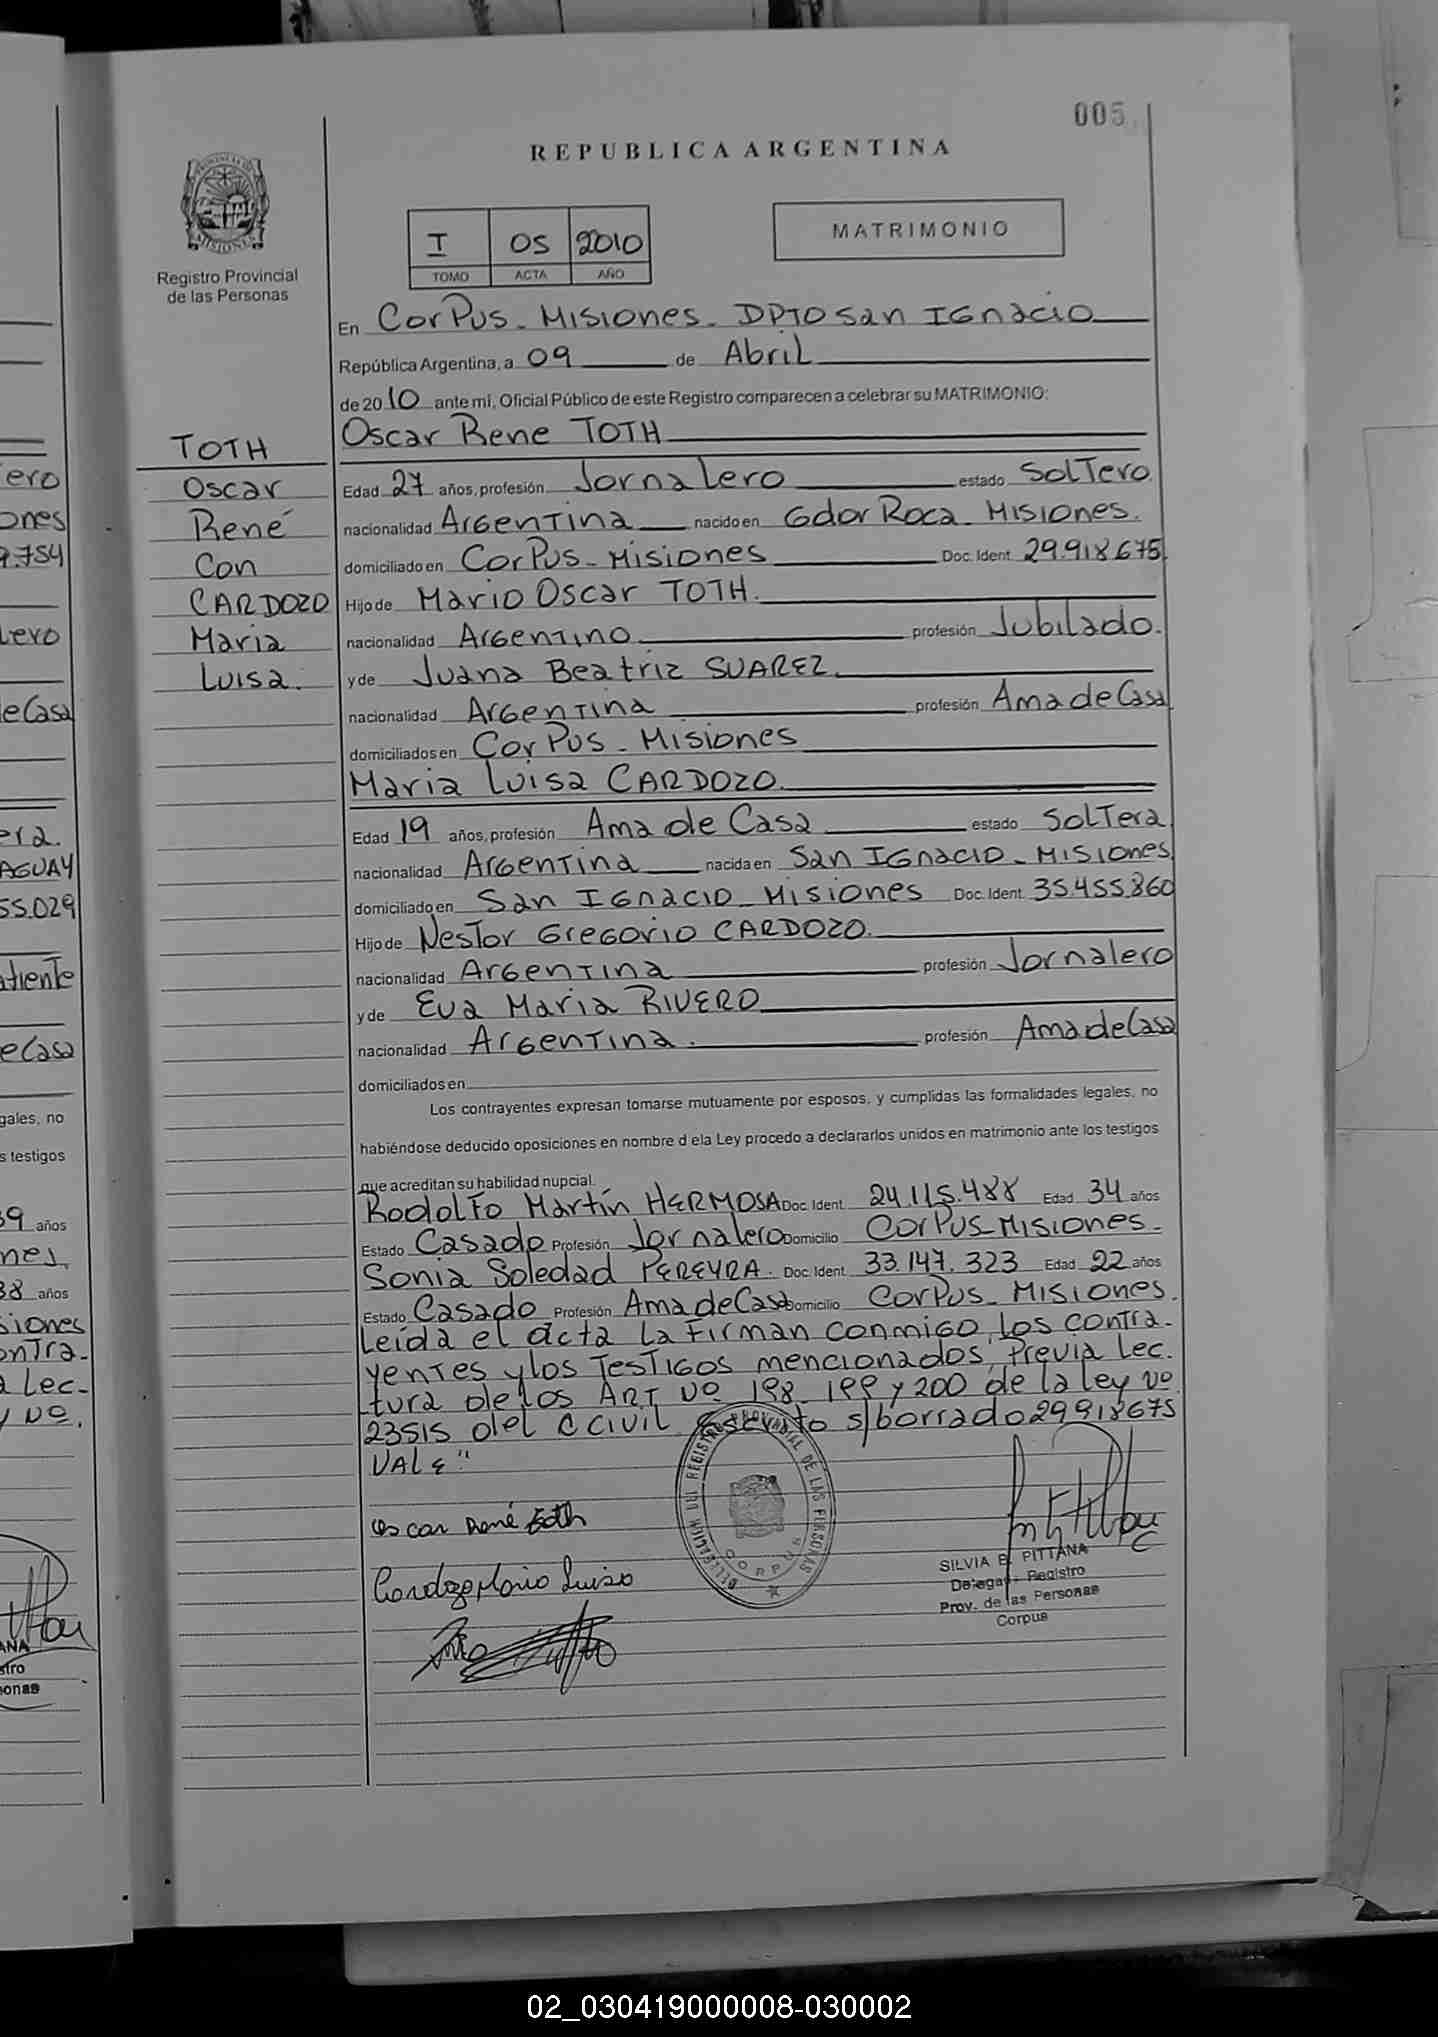 005
REPUBLICA ARGENTINA
PROVINCIA DE
MISIONES
Registro Provincial
de las Personas
I 05 2010
TOMO ACTA AÑO
MATRIMONIO
En CorPus - Misiones - DPTO San Ignacio
República Argentina, a 09 de Abril
de 2010 ante mí, Oficial Público de este Registro comparecen a celebrar su MATRIMONIO:
Oscar Rene TOTH
Edad 27 años, profesión Jornalero estado Soltero
nacionalidad Argentina nacido en Gdor Roca - Misiones.
domiciliado en CorPus - Misiones Doc. Ident. 29.918675
Hijo de Mario Oscar TOTH.
nacionalidad Argentino profesión Jubilado.
y de Juana Beatriz SUAREZ
nacionalidad Argentina profesión Ama de Casa
domiciliados en CorPus - Misiones
Maria Luisa CARDOZO.
Edad 19 años, profesión Ama de Casa estado Soltera
nacionalidad Argentina nacida en San Ignacio - Misiones
domiciliado en San Ignacio - Misiones Doc. Ident. 35.455.860
Hijo de Nestor Gregorio CARDOZO.
nacionalidad Argentina profesión Jornalero
y de Eva Maria RIVERO
nacionalidad Argentina. profesión Ama de Casa
domiciliados en
Los contrayentes expresan tomarse mutuamente por esposos, y cumplidas las formalidades legales, no
habiéndose deducido oposiciones en nombre d ela Ley procedo a declararlos unidos en matrimonio ante los testigos
que acreditan su habilidad nupcial.
Rodolfo Martín HERMOSA Doc. Ident. 24.115.488 Edad 34 años
Estado Casado Profesión Jornalero Domicilio CorPus - Misiones -
Sonia Soledad PEREYRA. Doc. Ident. 33.147.323 Edad 22 años
Estado Casado Profesión Ama de Casa Domicilio CorPus - Misiones.
Leída el acta la Firman conmigo, los contra-
yentes y los Testigos mencionados, Previa Lec.
tura de los ART Nº 198 - 199 y 200 de la ley Nº
23515 del C Civil Escrito s/borrado 29918675
VALE"
TOTH
Oscar
René
Con
CARDOZO
Maria
Luisa.
Oscar René Toth
Cardozo Maria Luisa
DELEGACION DEL REGISTRO PROVINCIAL DE LAS PERSONAS
CORPUS
SILVIA B. PITTANA
Delegada Registro
Prov. de las Personas
Corpus
ero
ones
9.754
Lero
e Casa
era.
AGUAY
55.029
e Casa
gales, no
s testigos
39 años
nes,
38 años
siones
ontra-
a Lec-
y Nº.
ANA
stro
sonas
02_030419000008-030002